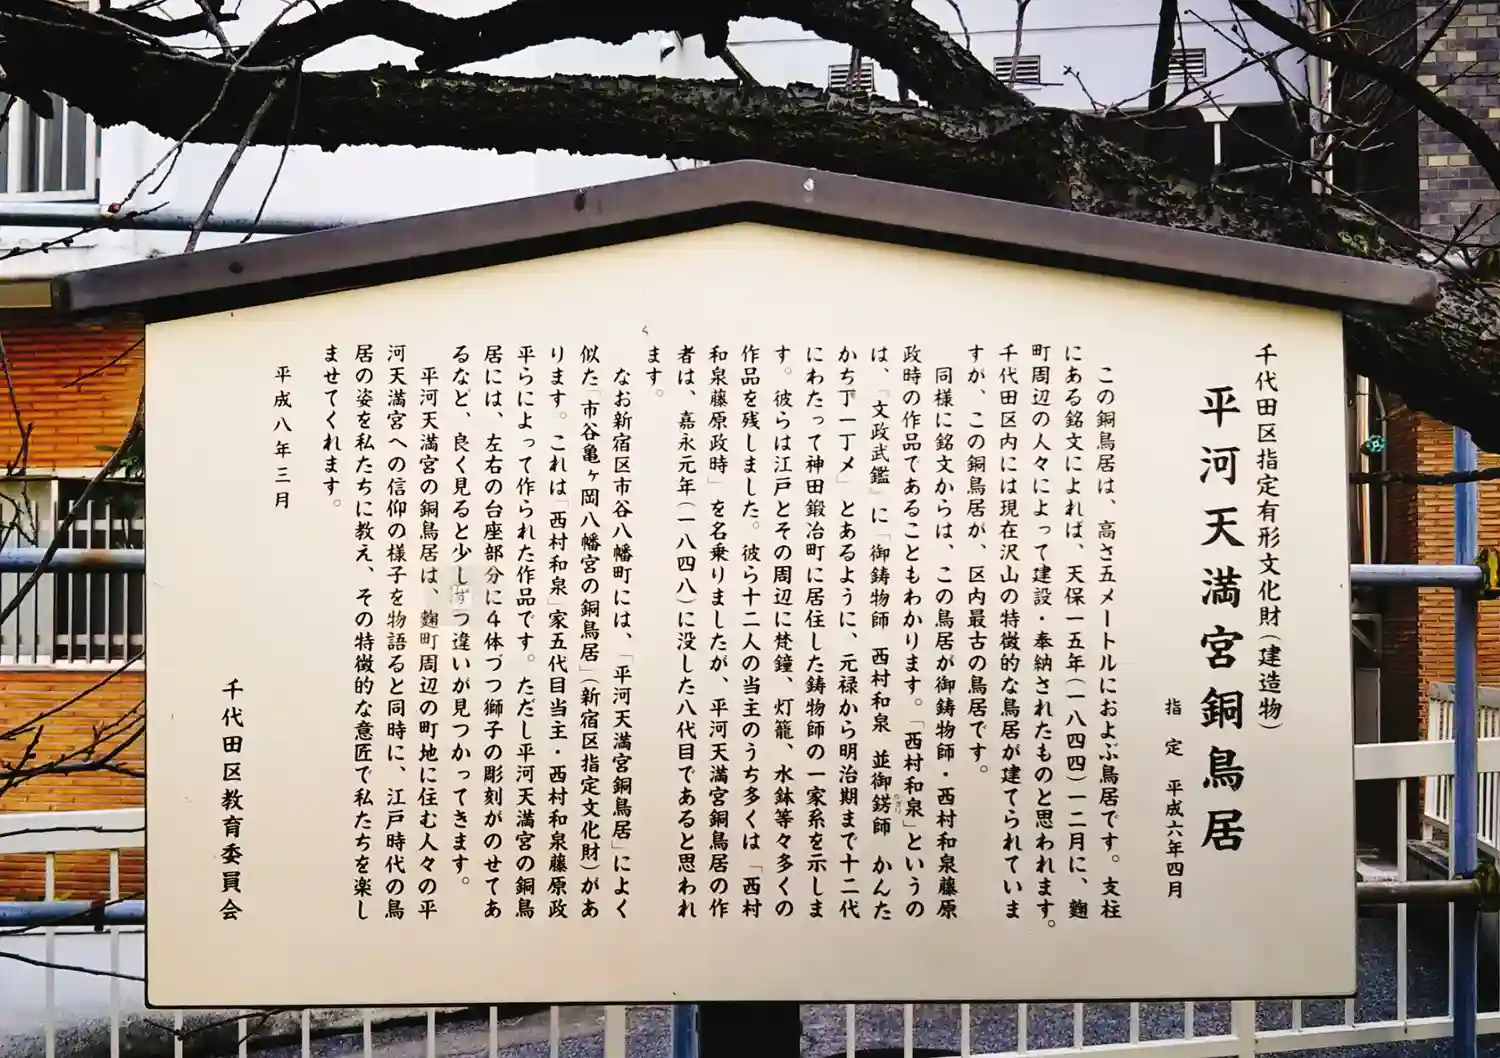 千代田区指定有形文化財(建造物)
平河天満宮銅鳥居
指定 平成六年四月
この銅鳥居は、高さ五メートルにおよぶ鳥居です。支柱
にある銘文によれば、天保一五年(一八四四)一二月に、麴
町周辺の人々によって建設・奉納されたものと思われます。
千代田区内には現在沢山の特徴的な鳥居が建てられていま
すが、この銅鳥居が、区内最古の鳥居です。
同様に銘文からは、この鳥居が御鋳物師・西村和泉藤原
政時の作品であることもわかります。「西村和泉」というの
は、『文政武鑑』に「御鋳物師 西村和泉 並御鐋師 かんた
かち丁一丁メ」とあるように、元禄から明治期まで十二代
にわたって神田鍛冶町に居住した鋳物師の一家系を示しま
す。彼らは江戸とその周辺に梵鐘、灯籠、水鉢等々多くの
作品を残しました。彼ら十二人の当主のうち多くは「西村
和泉藤原政時」を名乗りましたが、平河天満宮銅鳥居の作
者は、嘉永元年(一八四八)に没した八代目であると思われ
ます。
なお新宿区市谷八幡町には、「平河天満宮銅鳥居」によく
似た「市谷亀ヶ岡八幡宮の銅鳥居」(新宿区指定文化財)があ
ります。これは「西村和泉」家五代目当主・西村和泉藤原政
平らによって作られた作品です。ただし平河天満宮の銅鳥
居には、左右の台座部分に4体づつ獅子の彫刻がのせてあ
るなど、良く見ると少しずつ違いが見つかってきます。
平河天満宮の銅鳥居は、麴町周辺の町地に住む人々の平
河天満宮への信仰の様子を物語ると同時に、江戸時代の鳥
居の姿を私たちに教え、その特徴的な意匠で私たちを楽し
ませてくれます。
平成八年三月
千代田区教育委員会